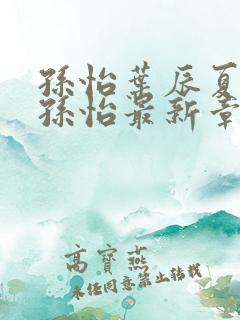 孫怡葉辰夏
孫怡最新章
高寶燕
未经同意禁止转载